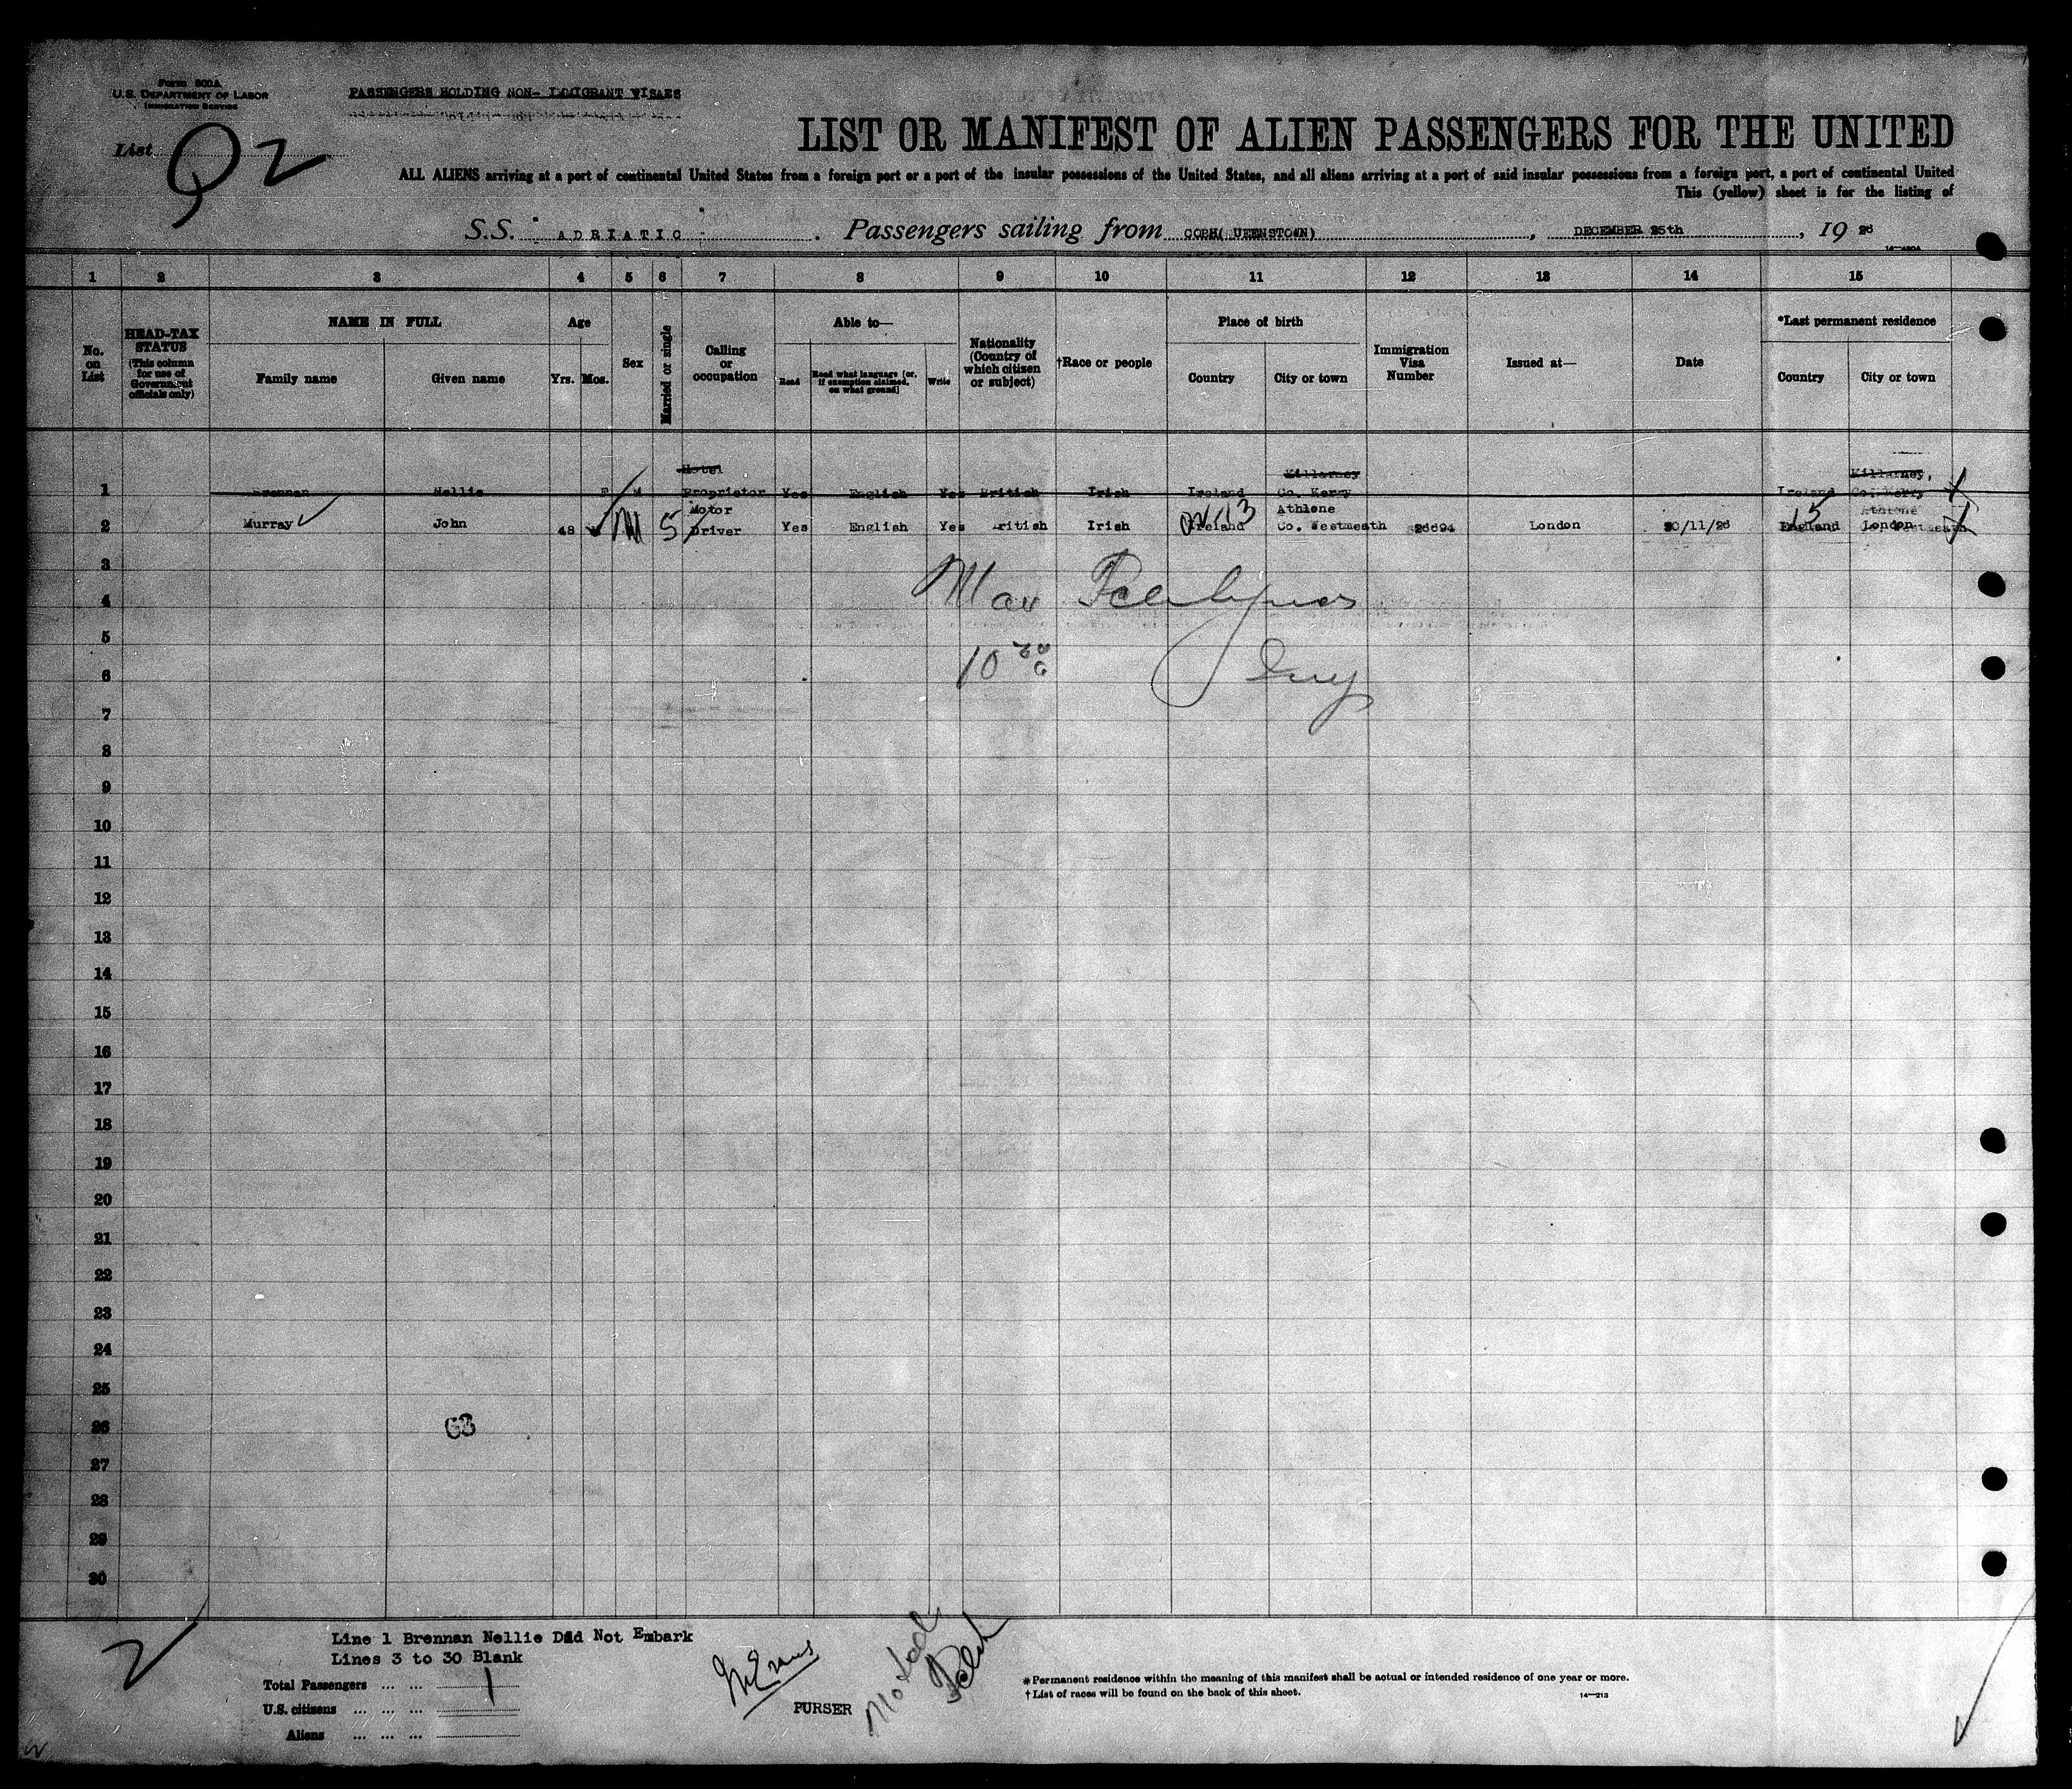 Form 500A
U.S. DEPARTMENT OF LABOR
IMMIGRATION SERVICE
PASSENGERS HOLDING NON- IMMIGRANT VISAES
List
LIST OR MANIFEST OF ALIEN PASSENGERS FOR THE UNITED
ALL ALIENS arriving at a port of continental United States from a foreign port or a port of the insular possessions of the United States, and all aliens arriving at a port of said insular possessions from a foreign port, a port of continental United
This (yellow) sheet is for the listing of
S.S. ADRIATIC. Passengers sailing from COBH( UEENSTOWN), DECEMBER 25th, 19 26
1 2 3 4 5 6 7 8 9 10 11 12 13 14 15
No. on List
HEAD-TAX STATUS
(This column for use of Government officials only)
NAME IN FULL
Family name Given name
Age
Yrs. Mos.
Sex
Married or single
Calling or occupation
Able to—
Read
Read what language [or, if exemption claimed, on what ground]
Write
Nationality (Country of which citizen or subject)
†Race or people
Place of birth
Country City or town
Immigration Visa Number
Issued at—
Date
*Last permanent residence
Country City or town
Hotel Killarney Killarney,
1 Brennan Nellie Proprietor Yes English Yes British Irish Ireland Co. Kerry Ireland Co. Kerry
Motor Athlone Athlone
2 Murray John 48 M S Driver Yes English Yes ritish Irish Ireland Co. Westmeath 26694 London 30/11/26 England London
3
4
5
6
7
8
9
10
11
12
13
14
15
16
17
18
19
20
21
22
23
24
25
26
27
28
29
30
Line 1 Brennan Nellie Did Not Embark
Lines 3 to 30 Blank
Total Passengers ... ... 1
U.S. citizens ... ... ...
Aliens ... ... ...
PURSER
* Permanent residence within the meaning of this manifest shall be actual or intended residence of one year or more.
† List of races will be found on the back of this sheet.
14—213